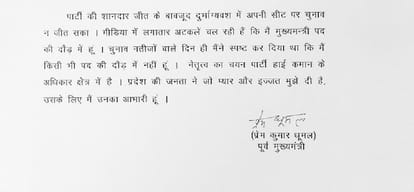 पार्टी की शानदार जीत के बावजूद दुर्भाग्यवश में अपनी सीट पर चुनाव
न जीत सका । मीडिया में लगातार अटकले चल रही हैं कि मैं मुख्यमन्त्री पद
की दौड़ में हूं । चुनाव नतीजों वाले दिन ही मैंने स्पष्ट कर दिया था कि मैं
किसी भी पद की दौड़ में नहीं हूं । नेतृत्व का चयन पार्टी हाई कमान के
अधिकार क्षेत्र में है । प्रदेश की जनता ने जो प्यार और इज्जत मुझे दी है,
उसके लिए मैं उनका आभारी हूं ।
प्रेम धूमल
(प्रेम कुमार धूमल)
पूर्व मुख्यमंत्री